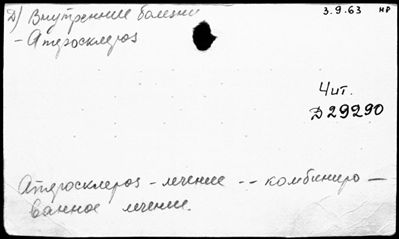 Д) Внутренние болезни
3.9.63 НР
- Атеросклероз
Чит.
Д 29290
Атеросклероз - лечение -- комбиниро-
ванное лечение.